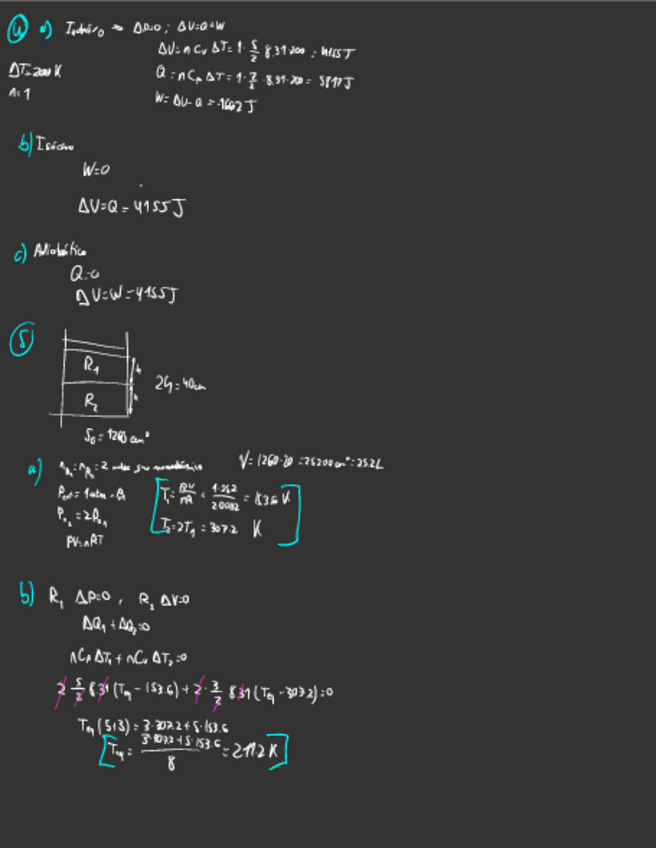 4 a) Isobáro → ΔP=0; ΔU=Q+W
ΔU=nCvΔT=1·5/2·8.31·200=4155J
ΔT=200K
Q=nCpΔT=1·7/2·8.31·200=5817J
n=1
W=ΔU-Q=-1662J
b) Isócoro
W=0
ΔU=Q=4155J
c) Adiabático
Q=0
ΔU=W=4155J
5
R₁
h
2h=40cm
R₂
h
S₀=1260cm²
a) n_R₁=n_R₂=2 moles gas monoatómico
V=1260·20=25200cm³=25.2L
P_ext=1atm=P₁
T₁=PV/nR=1·25.2/2·0.082=153.6K
P_R₂=2P_R₁
T₂=2T₁=307.2 K
PV=nRT
b) R₁ ΔP=0, R₂ ΔV=0
ΔQ₁+ΔQ₂=0
nCpΔT₁+nCvΔT₂=0
2·5/2·8.31(Teq-153.6)+2·3/2·8.31(Teq-307.2)=0
Teq(5+3)=3·307.2+5·153.6
Teq=3·307.2+5·153.6/8=211.2K